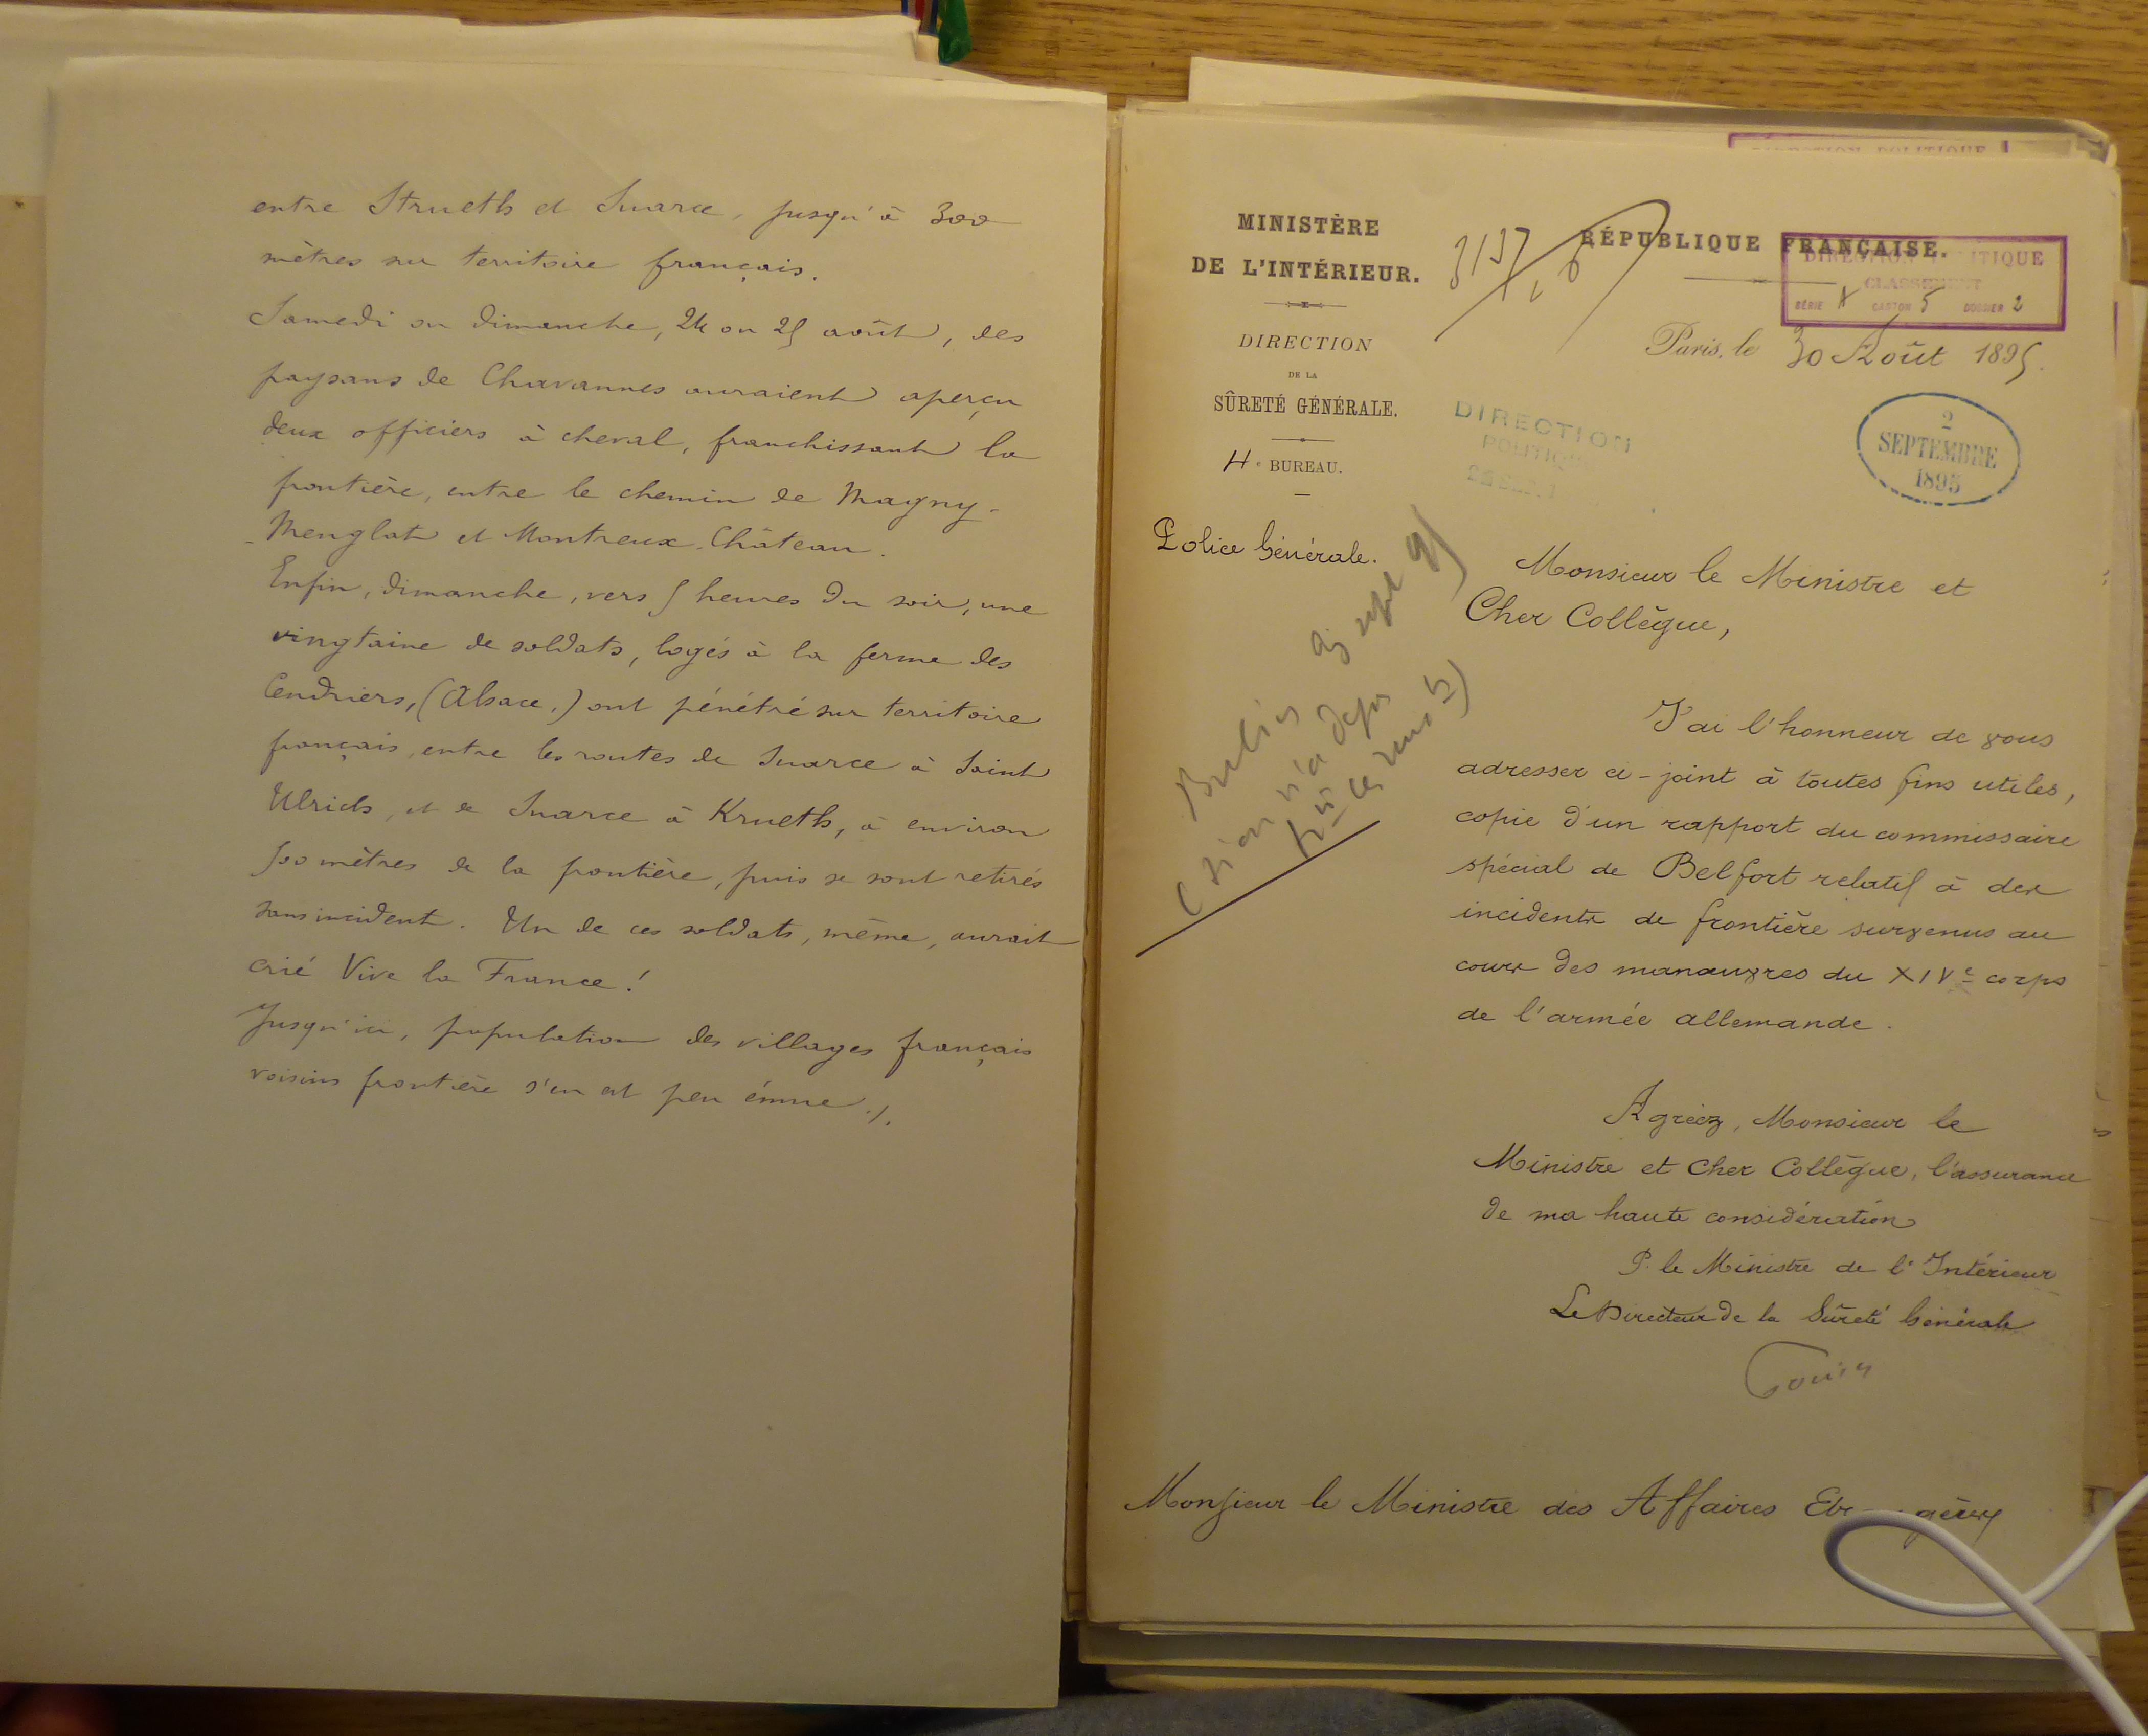 entre Strueth et Suarce, jusqu'à 300
mètres sur territoire français.
Samedi ou dimanche, 24 ou 25 août, des
paysans de Chavannes auraient aperçu
deux officiers à cheval, franchissant la
frontière, entre le chemin de Magny-
-Menglat et Montreux-Château.
Enfin, dimanche, vers 5 heures du soir, une
vingtaine de soldats, logés à la ferme des
Cendriers, (Alsace,) ont pénétré sur territoire
français, entre les routes de Suarce à Saint
Ulrich, et de Suarce à Krueth, à environ
500 mètres de la frontière, puis se sont retirés
sans incident. Un de ces soldats, même, aurait
crié Vive la France!
Jusqu'ici, population des villages français
voisins frontière s'en est peu émue ./.
MINISTÈRE
DE L'INTÉRIEUR.
DIRECTION
DE LA
SÛRETÉ GÉNÉRALE.
4e BUREAU.
Police Générale.
RÉPUBLIQUE FRANÇAISE.
DIRECTION POLITIQUE
CLASSEMENT
SÉRIE A CARTON 5 DOSSIER 2
Paris, le 30 Août 1895.
DIRECTION
POLITIQUE
2
SEPTEMBRE
1895
Monsieur le Ministre et
Cher Collègue,
J'ai l'honneur de vous
adresser ci-joint à toutes fins utiles,
copie d'un rapport du commissaire
spécial de Belfort relatif à des
incidents de frontière survenus au
cours des manœuvres du XIVe corps
de l'armée allemande.
Agréez, Monsieur le
Ministre et Cher Collègue, l'assurance
de ma haute considération
P. le Ministre de l'Intérieur
Le Directeur de la Sûreté Générale
Monsieur le Ministre des Affaires Etrangères
DIRECTION POLITIQUE